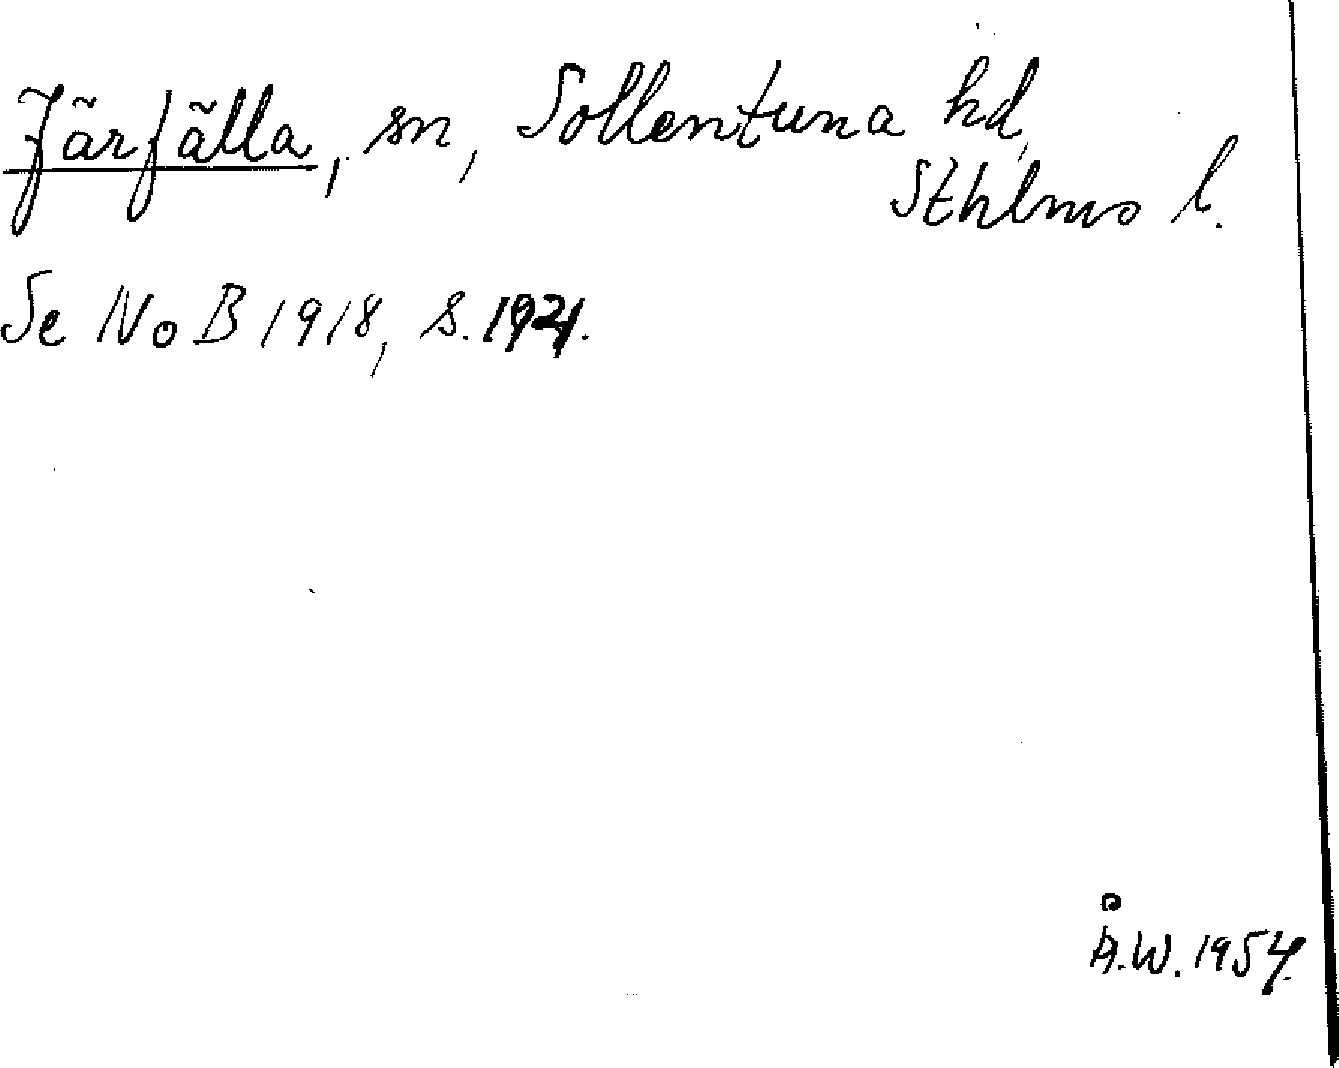 Järfälla, sn, Sollentuna hd,
Sthlms l.
Se NoB 1918, s.
Å.W. 1954.